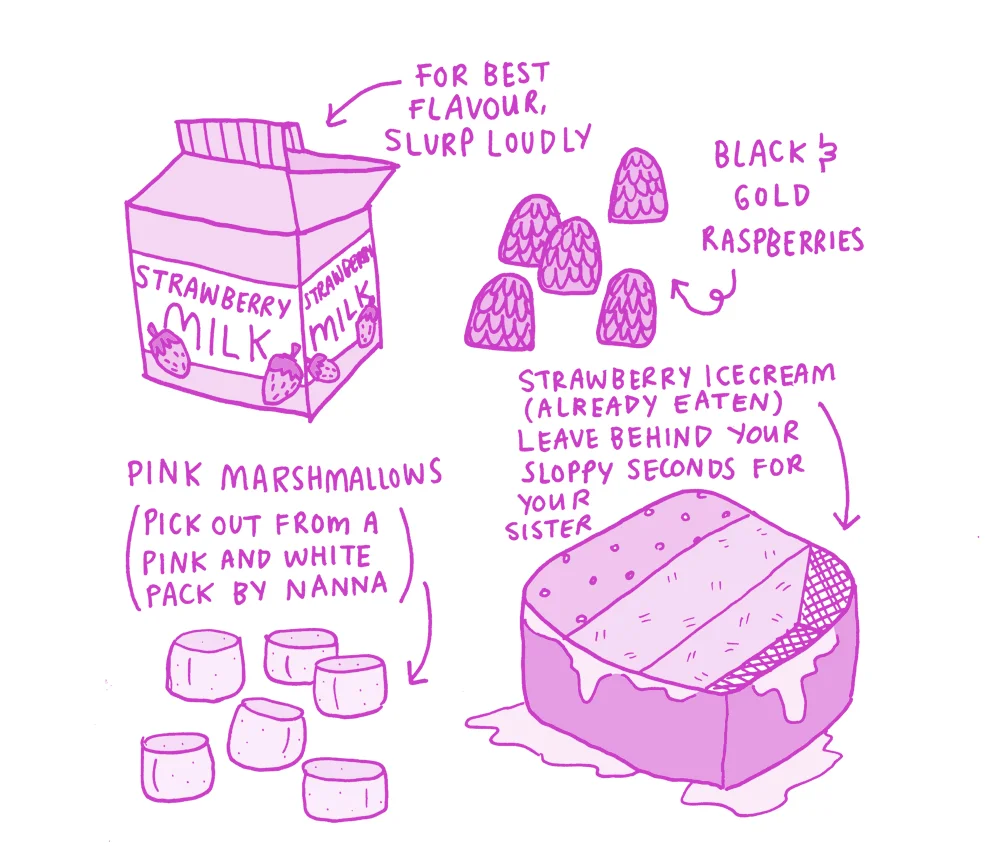 FOR BEST
FLAVOUR,
SLURP LOUDLY
BLACK &
GOLD
RASPBERRIES
STRAWBERRY
MILK
STRAWBERRY
MILK
STRAWBERRY ICECREAM
(ALREADY EATEN)
LEAVE BEHIND YOUR
SLOPPY SECONDS FOR
YOUR
SISTER
PINK MARSHMALLOWS
(PICK OUT FROM A
PINK AND WHITE
PACK BY NANNA)